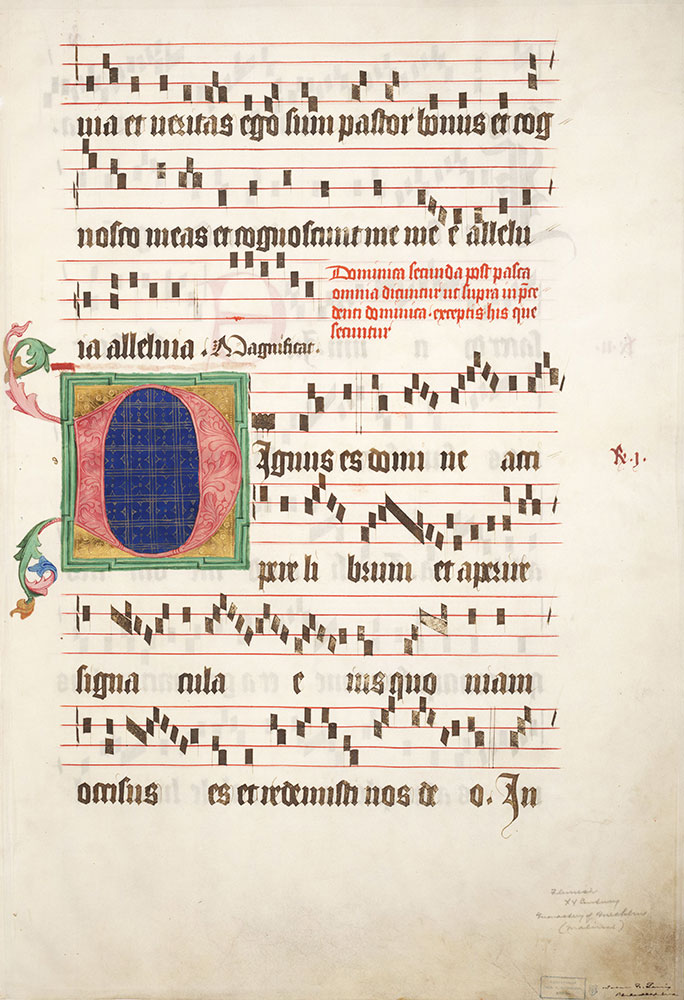 uia et ueritas ego sum pastor bonus et cog
nosco meas et cognoscunt me me e allelu
ia alleluia . Magnificat.
Dominica secunda post pasca
omnia dicuntur ut supra in p̄ce
denti dominica . exceptis his que
secuntur
DIgnus es domi ne acci
R. j.
pere li brum et aperire
signa cula e ius quo niam
occisus es et redemisti nos de o. In
Flemish
XV Century
Monastery of
(Malines)